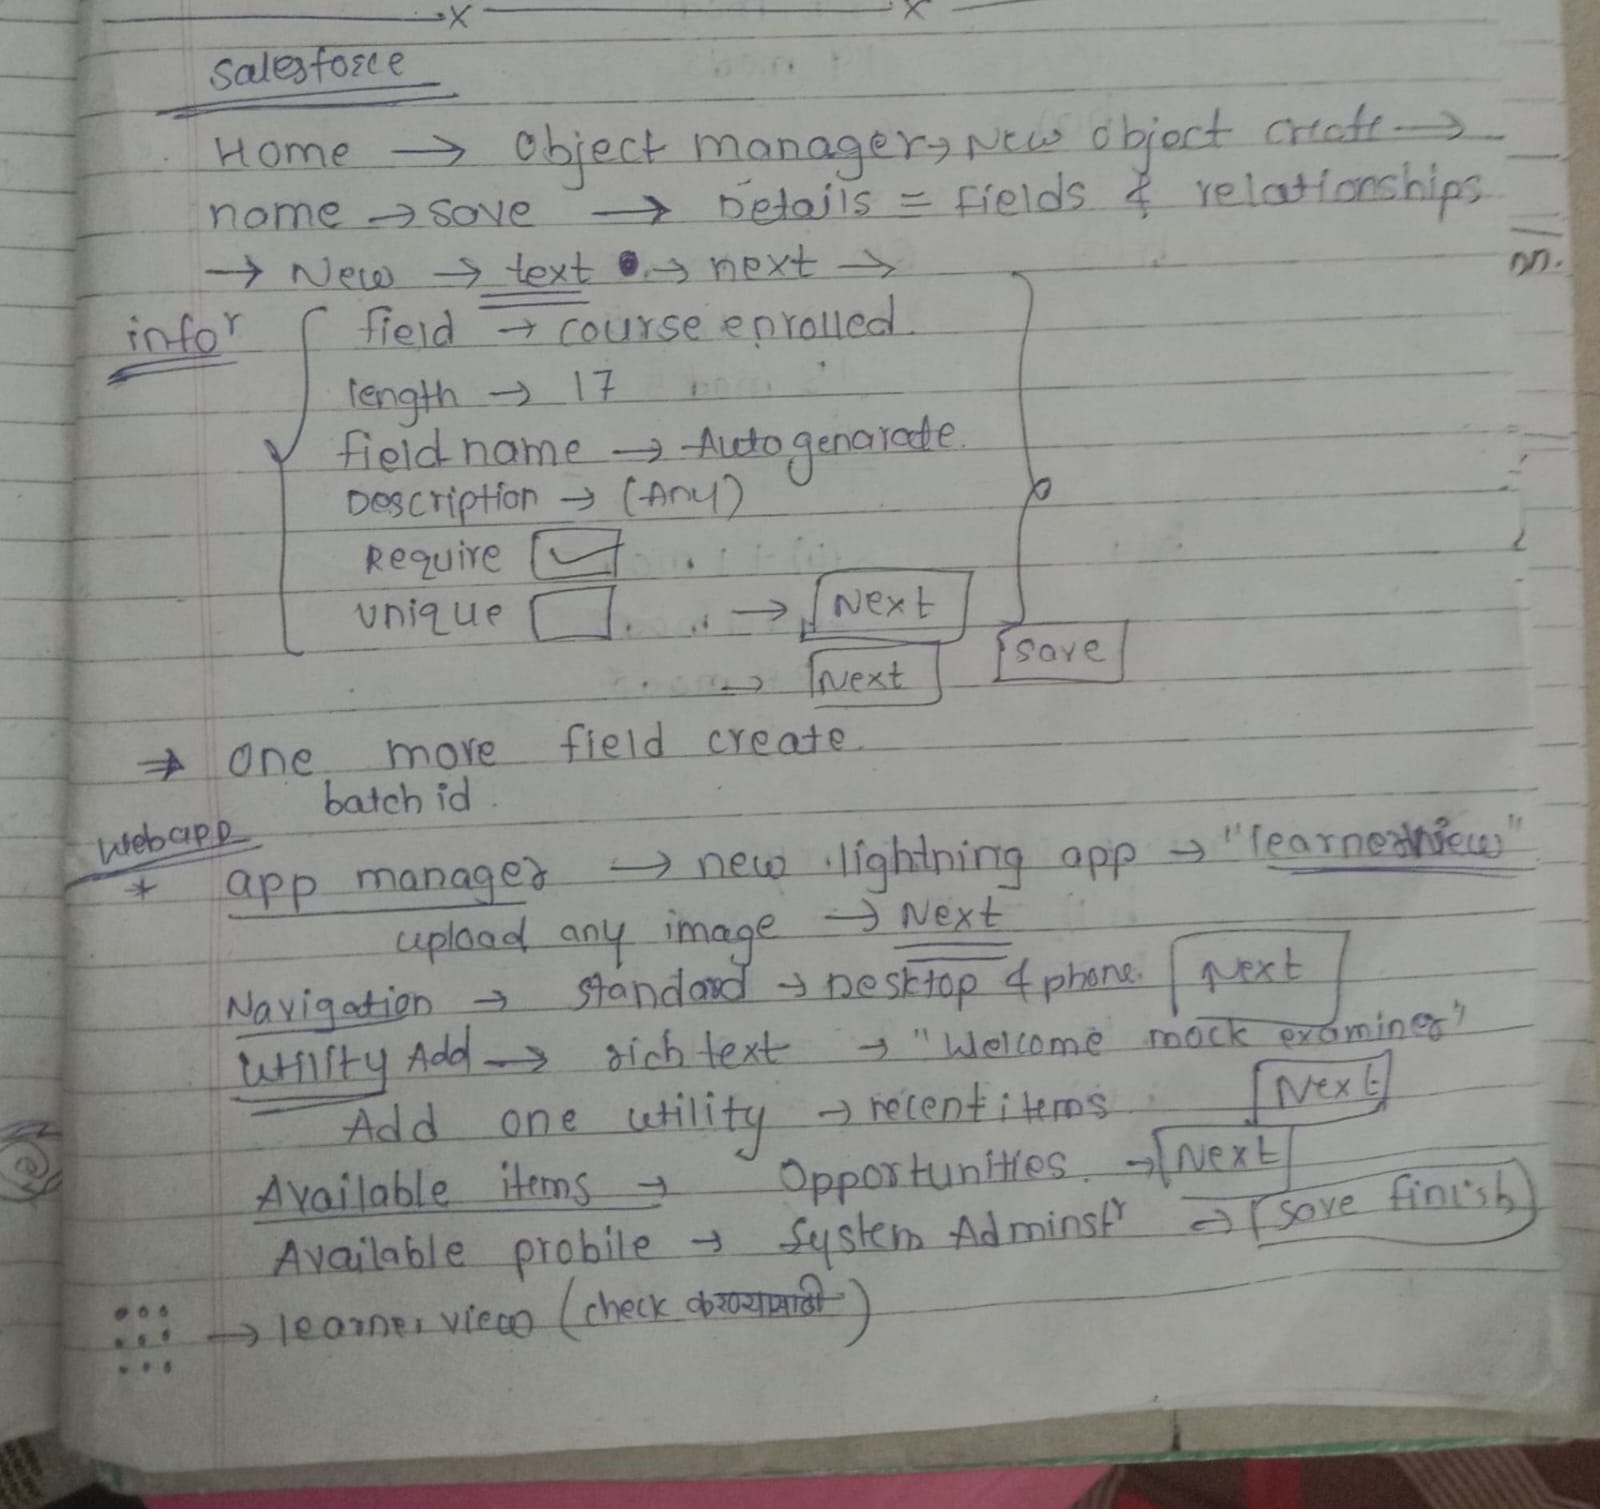 Salesforce
Home → Object manager → New object create →
name → save → Details = fields & relationships
→ New → text → next →
infor
field → course enrolled.
length → 17
field name → Auto genarate.
Description → (Any)
Require ☑
unique ☐ → Next
save
→ Next
⇒ one more field create
batch id.
webapp
* app manager → new lightning app → "learnerview"
upload any image → Next
Navigation → standard → Desktop & phone. Next
Utility Add → rich text → "Welcome mock examiner"
Add one utility → recent items Next
Available items → Opportunities. → Next
Available probile → System Adminstr → save finish
→ learner view (check करण्यासाठी)